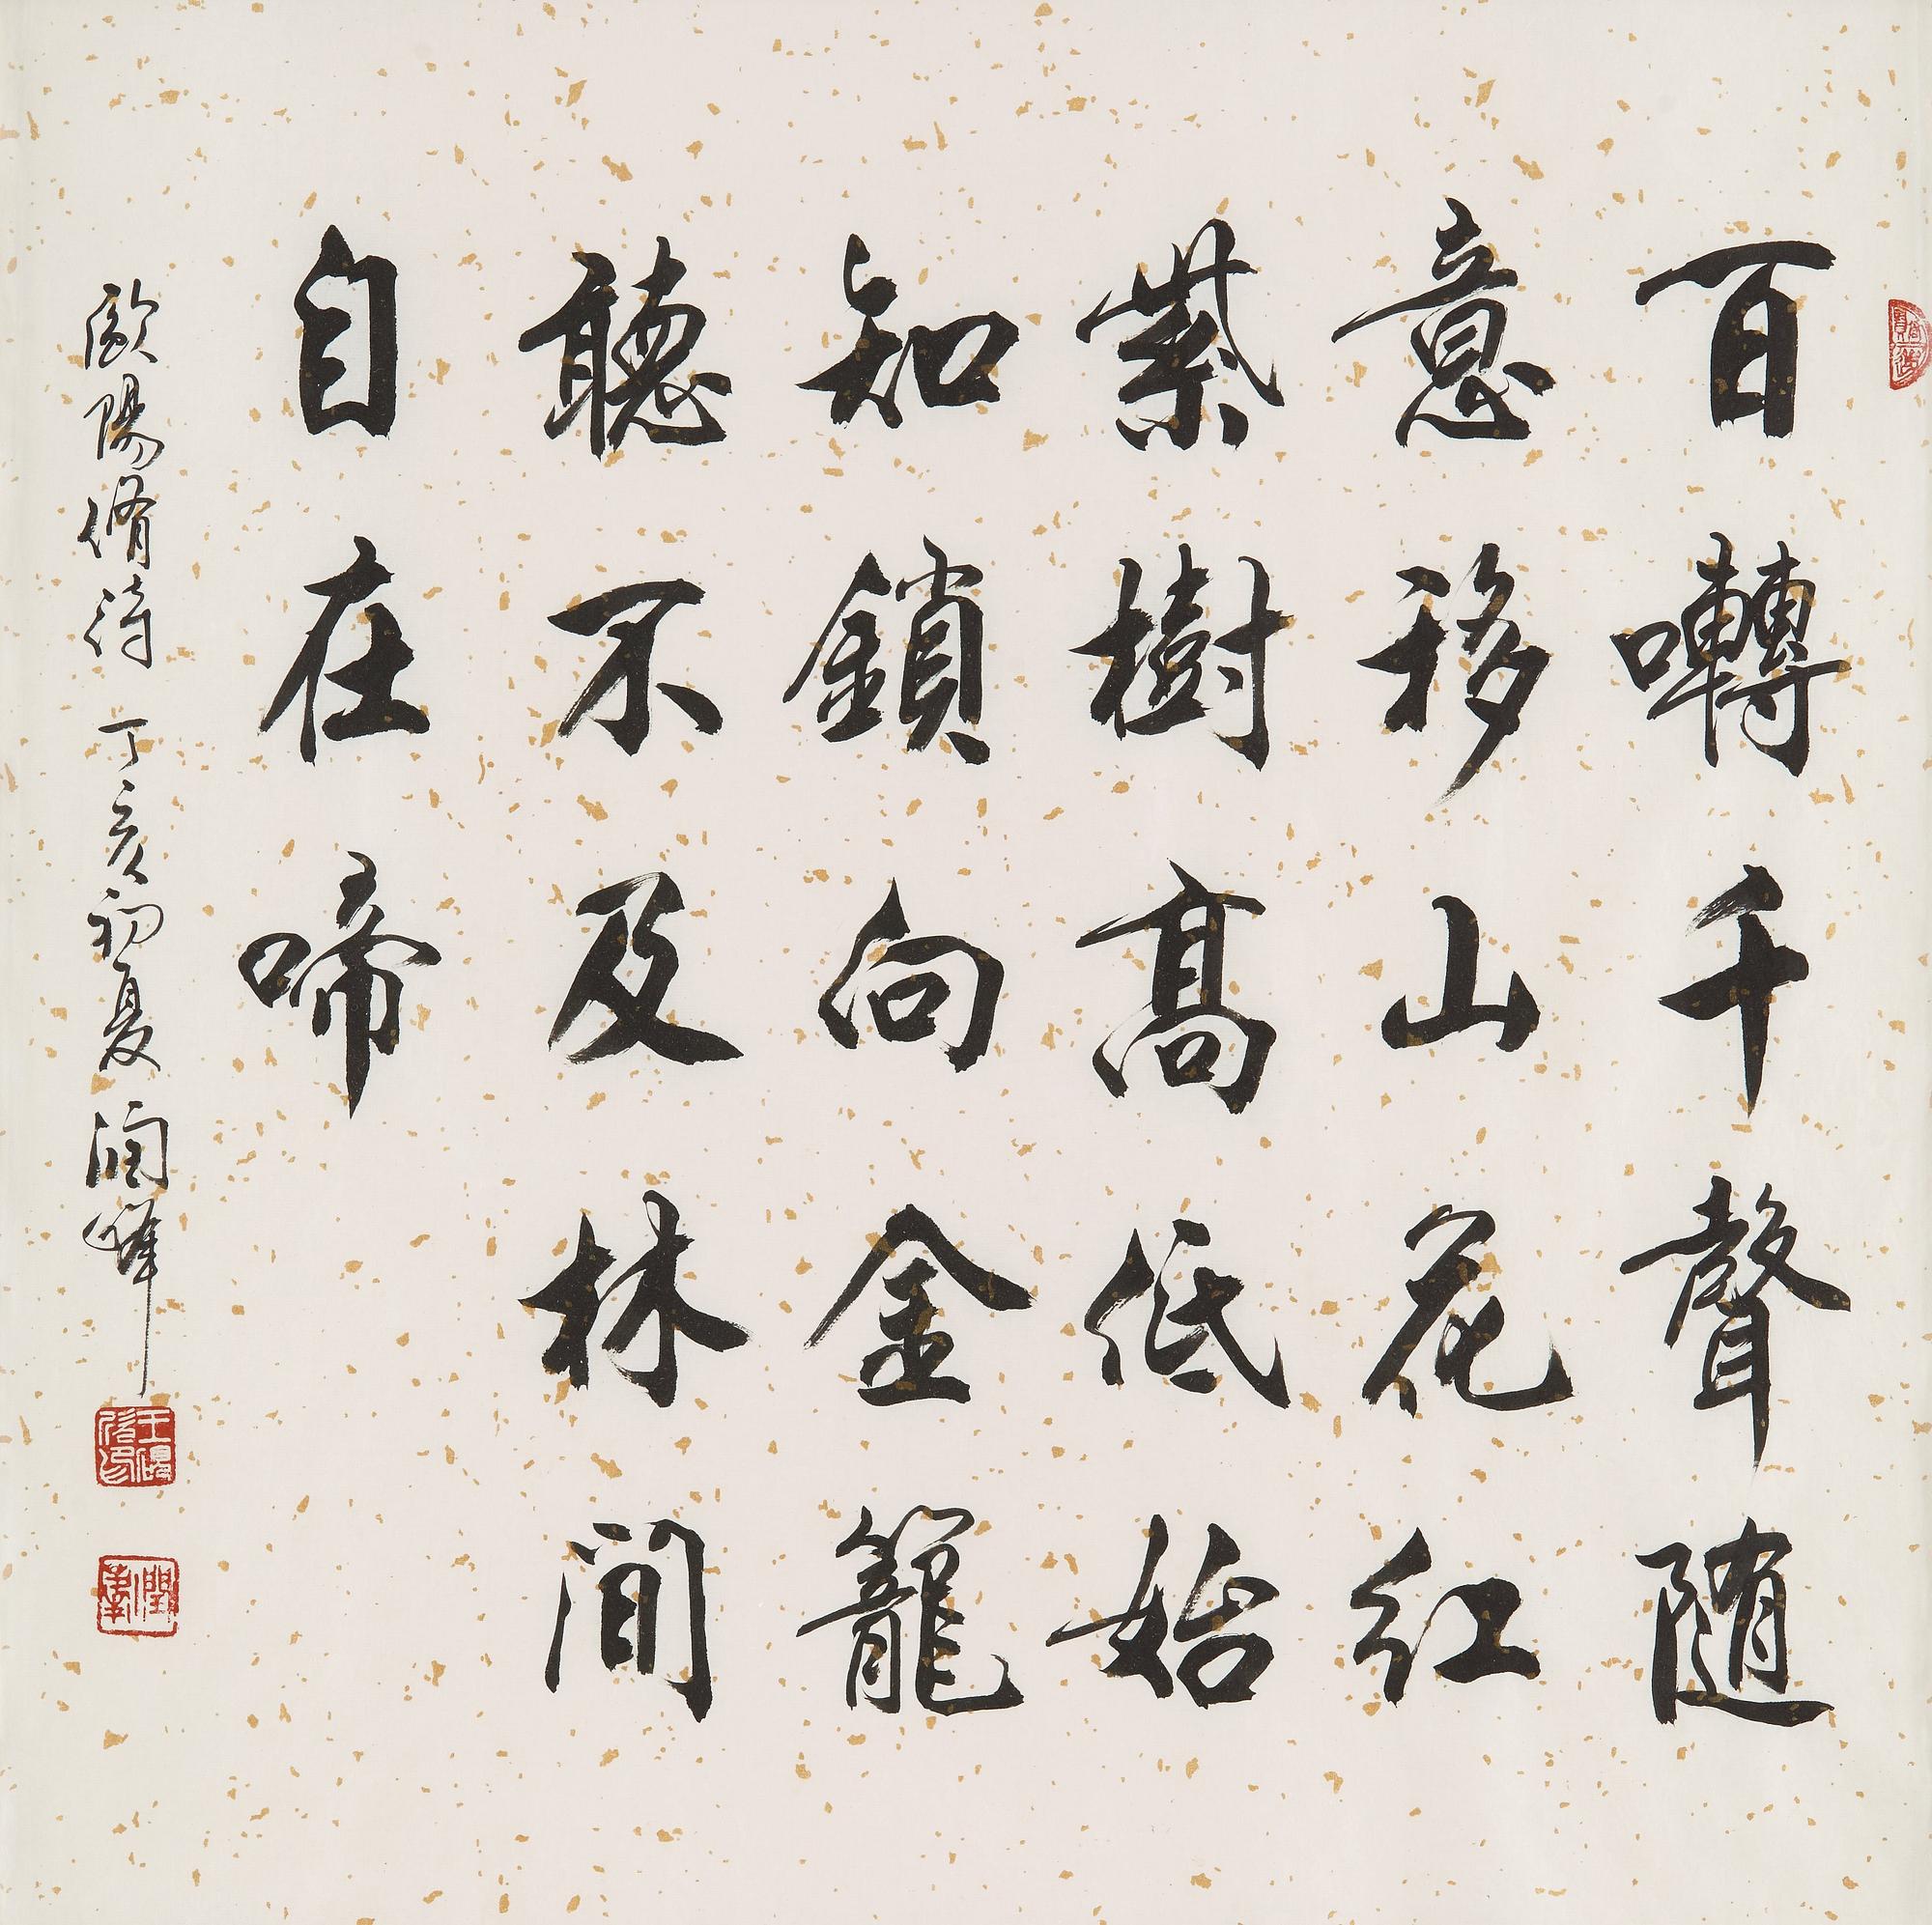 百囀千聲隨
意移山花紅
紫樹高低始
知鎖向金籠
聽不及林間
自在啼
歐陽脩詩 丁亥初夏 潤峰